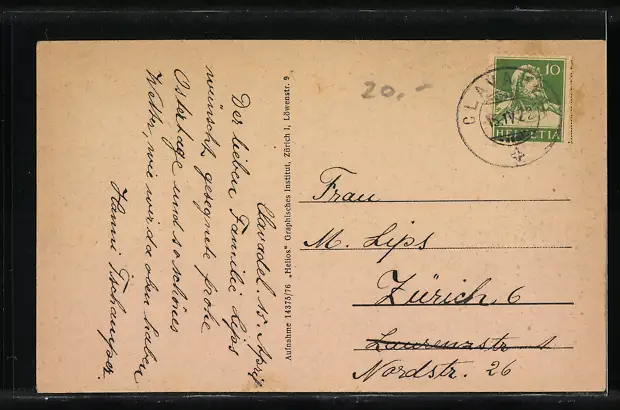 Clavadel 15. April
Der lieben Familie Lips
wünscht gesegnete frohe
Ostertage und so schönes
Wetter, wie wir da oben haben
Hanni Tschamper.
Aufnahme 14375/76 „Helios" Graphisches Institut, Zürich 1, Löwenstr. 9
20.-
10
HELVETIA
Frau
M. Lips
Zürich 6
Laurenzstr 1
Nordstr. 26